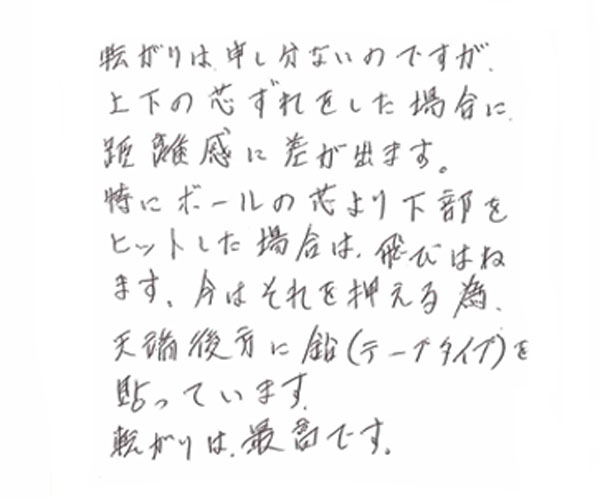 転がりは、申し分ないのですが、
上下の芯ずれをした場合に、
距離感に差が出ます。
特にボールの芯より下部を
ヒットした場合は、飛びはね
ます、今はそれを押える為、
天端後方に鉛(テープタイプ)を
貼っています。
転がりは、最高です。